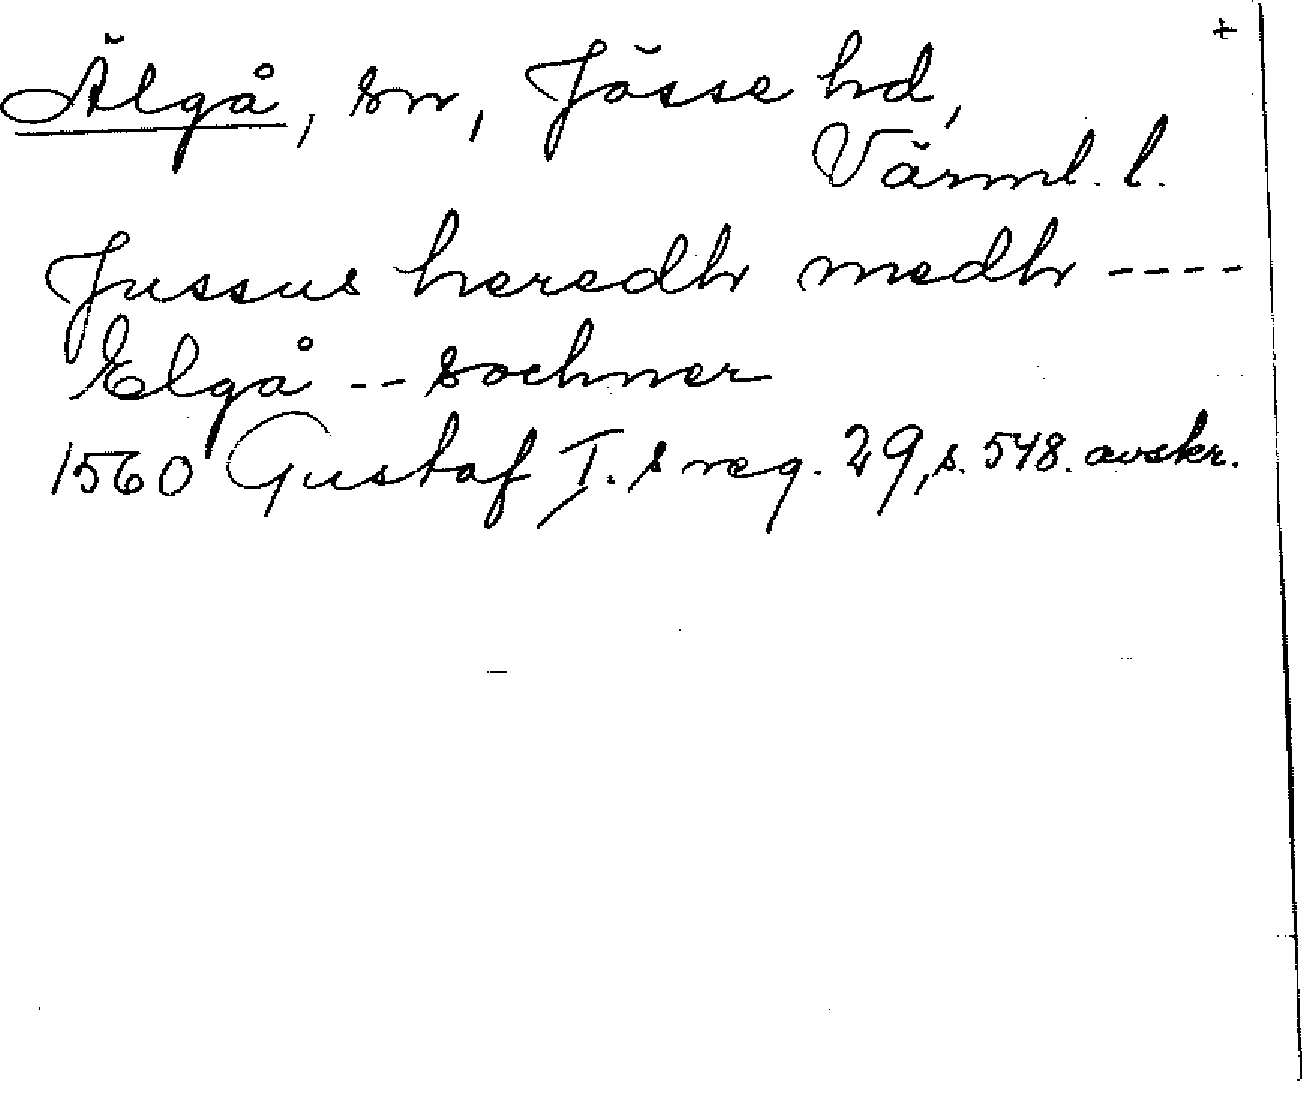 +
Älgå, sn, Jösse hd,
Värml. l.
Jussus heredh medh ----
Elgå -- sochner
1560 Gustaf I. s reg. 29, s. 548. avskr.